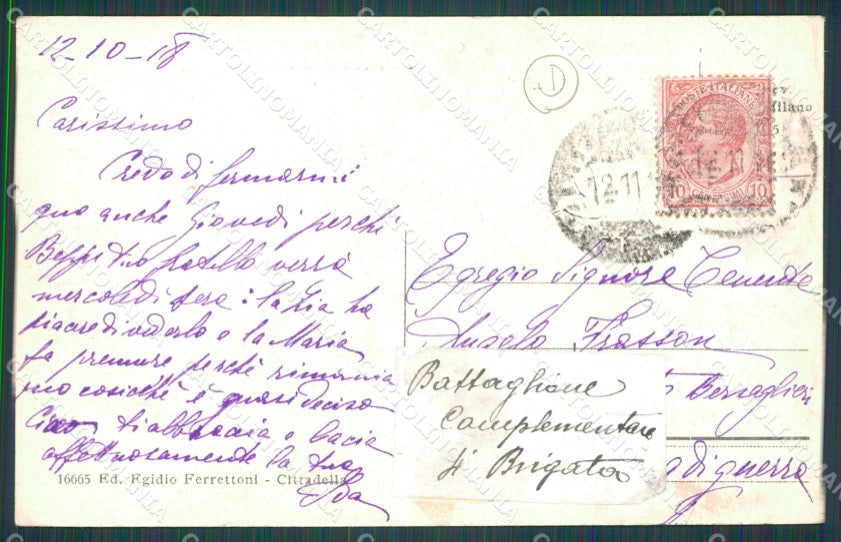 12-10-18
Carissimo
Credo di fermarmi
qua anche Giovedì perchè
Beppi tuo fratello verrà
mercoledì sera: la zia ha
piacere di vederlo e la Maria
fa premure perchè rimania
mo cosichè è quasi deciso
Ciao ti abbraccia e bacia
affettuosamente la tua
Ida
16665 Ed. Egidio Ferrettoni - Cittadella
D
POSTE ITALIANE
10 10
12.11
12.11
Milano
Egregio Signore Tenente
Angelo Frasson
Bersaglieri
di guerra
Battaglione
Complementare
di Brigata
CARTOLINOMANIA